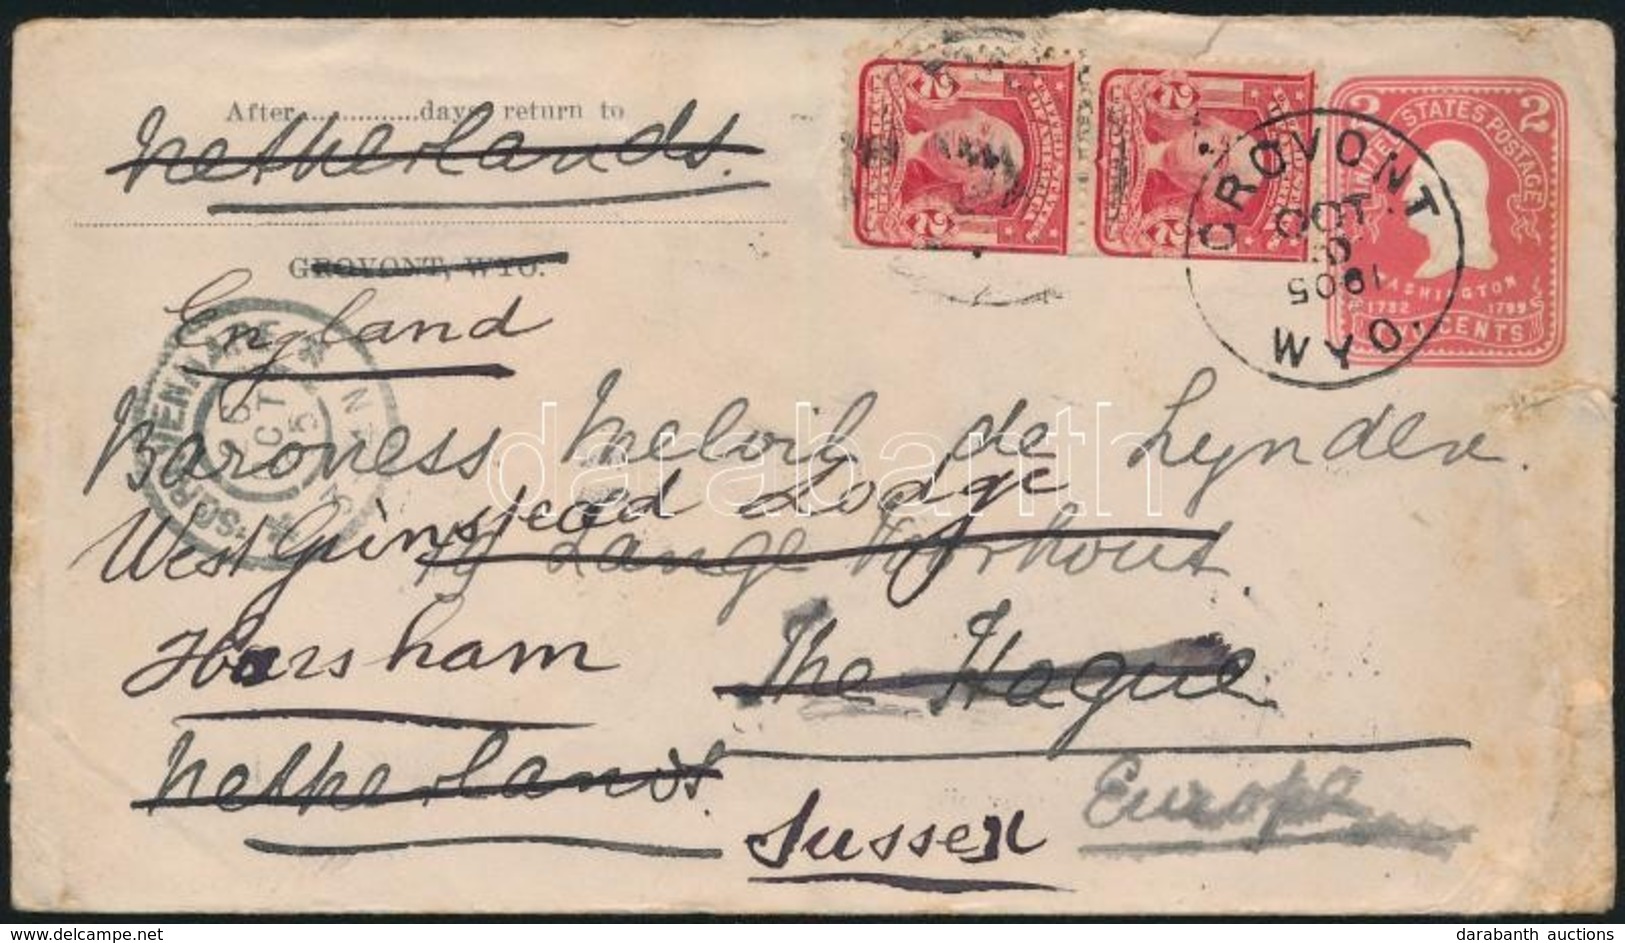 After..............days, return to
Netherlands.
GROVONT, WYO.
England
Baroness Melvil de Lynden.
West Grinstead Lodge
19 Lange Voorhout.
Horsham
The Hague
Netherlands.
Sussex
Europe
2 2
2 2
UNITED STATES POSTAGE
2
WASHINGTON
1732 1799
TWO CENTS
GROVONT
OCT
1905
WYO.
OCT
darabanth
delcampe.net
darabanth auctions